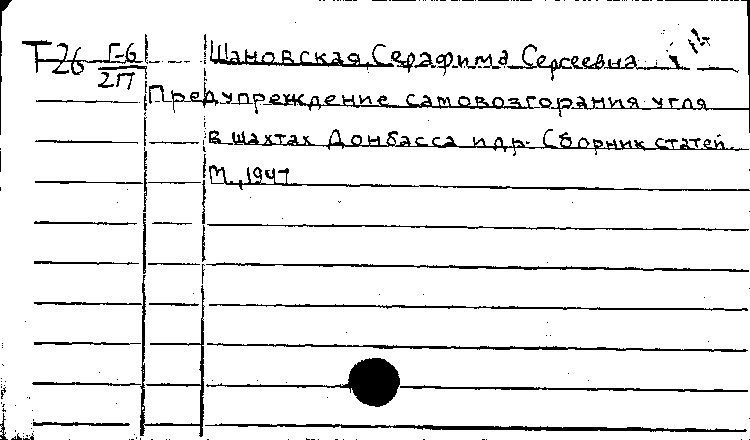 Т-26 Г-6 Шановская, Серафима Сергеевна
2П
Предупреждение самовозгорания угля
в шахтах Донбасса и др. Сборник статей.
М., 1947